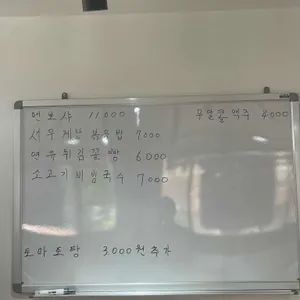 멘보샤 11000
무알콜맥주 4000
새우계란볶음밥 7000
연유튀김꽃빵 6000
소고기비빔국수 7000
토마토탕 3.000원추가